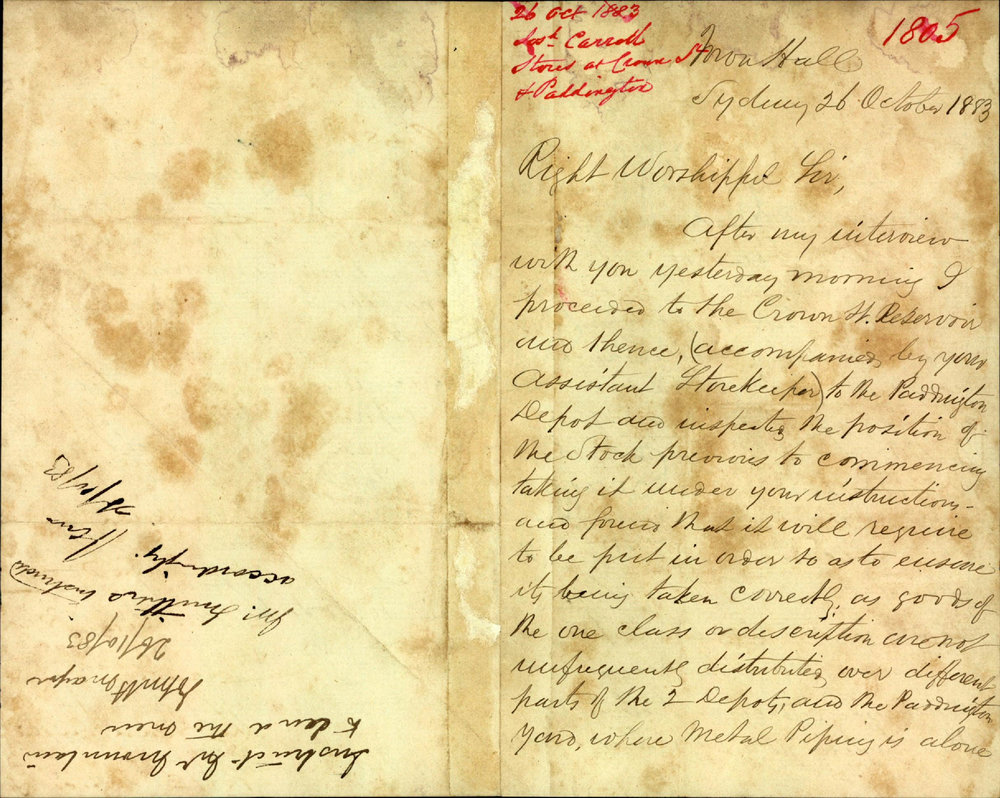 26 Oct 1883
Josh Carroll
Stores at Crown St
& Paddington
1805
Town Hall
Sydney 26 October 1883
Right Worshipful Sir,
After my interview
with you yesterday morning I
proceeded to the Crown St. Reservoir
and thence, (accompanied by your
assistant Storekeeper) to the Paddington
Depot and inspected the position of
the Stock previous to commencing
taking it under your instructions -
and found that it will require
to be put in order so as to ensure
its being taken correctly; as goods of
the one class or description are not
unfrequently distributed over different
parts of the 2 Depots; and the Paddington
Yard, where Metal Piping is alone
Instruct Mr Mountain
to lend the men
John Mayor
26/10/83
Mr. instructed
accordingly.
/10/83